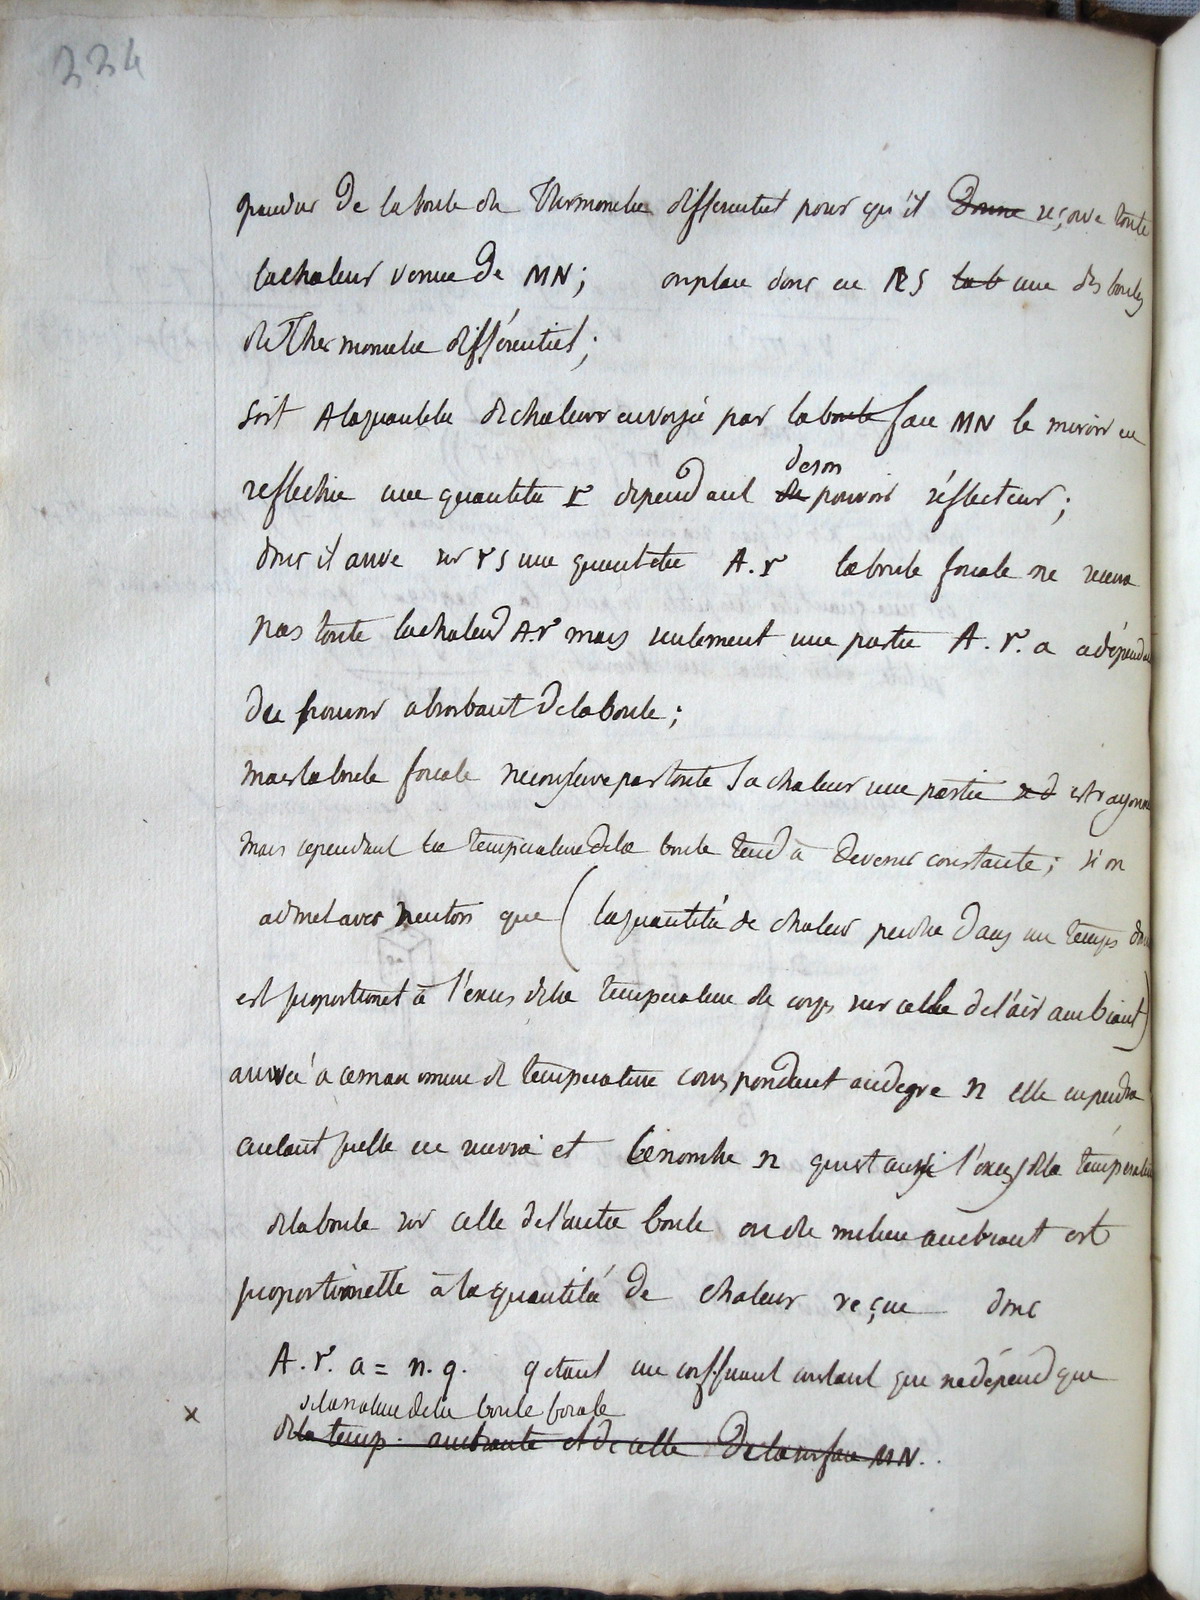 224
grandeur de la boule du Thermometre differentiel pour qu'il donne reçoive toute
la chaleur venue de MN; on place donc en RS la b une des boules
du Thermometre différentiel;
soit A la quantité de chaleur envoyée par la boule face MN le miroir en
reflechie une quantité r dependant de son de pouvoir réflecteur;
donc il arrive sur rs une quantité A.r la boule focale ne recevra
pas toute la chaleur A.r mais seulement une partie A.r.a a dépendant
du pouvoir absorbant de la boule;
mais la boule focale ne conserve pas toute sa chaleur une partie est rayonnée
mais cependant la temperature de la boule tend à devenir constante; si on
admet avec Neuton que (la quantité de chaleur perdue dans un temps donné
est proportionel à l'exces de la temperature du corps sur celle de l'air ambiant)
arrivé a ce maximum de temperature correspondant au degré n elle en perdra
autant qu'elle en recevra et le nombre n qui est aussi l'exces de la température
de la boule sur celle de l'autre boule ou du milieu ambiant est
proportionelle à la quantité de chaleur reçue donc
A.r.a = n.q. q etant un coefficient constant qui ne dépend que
de la nature de la boule focale
x de la temp. ambiante et de celle de la surface MN..